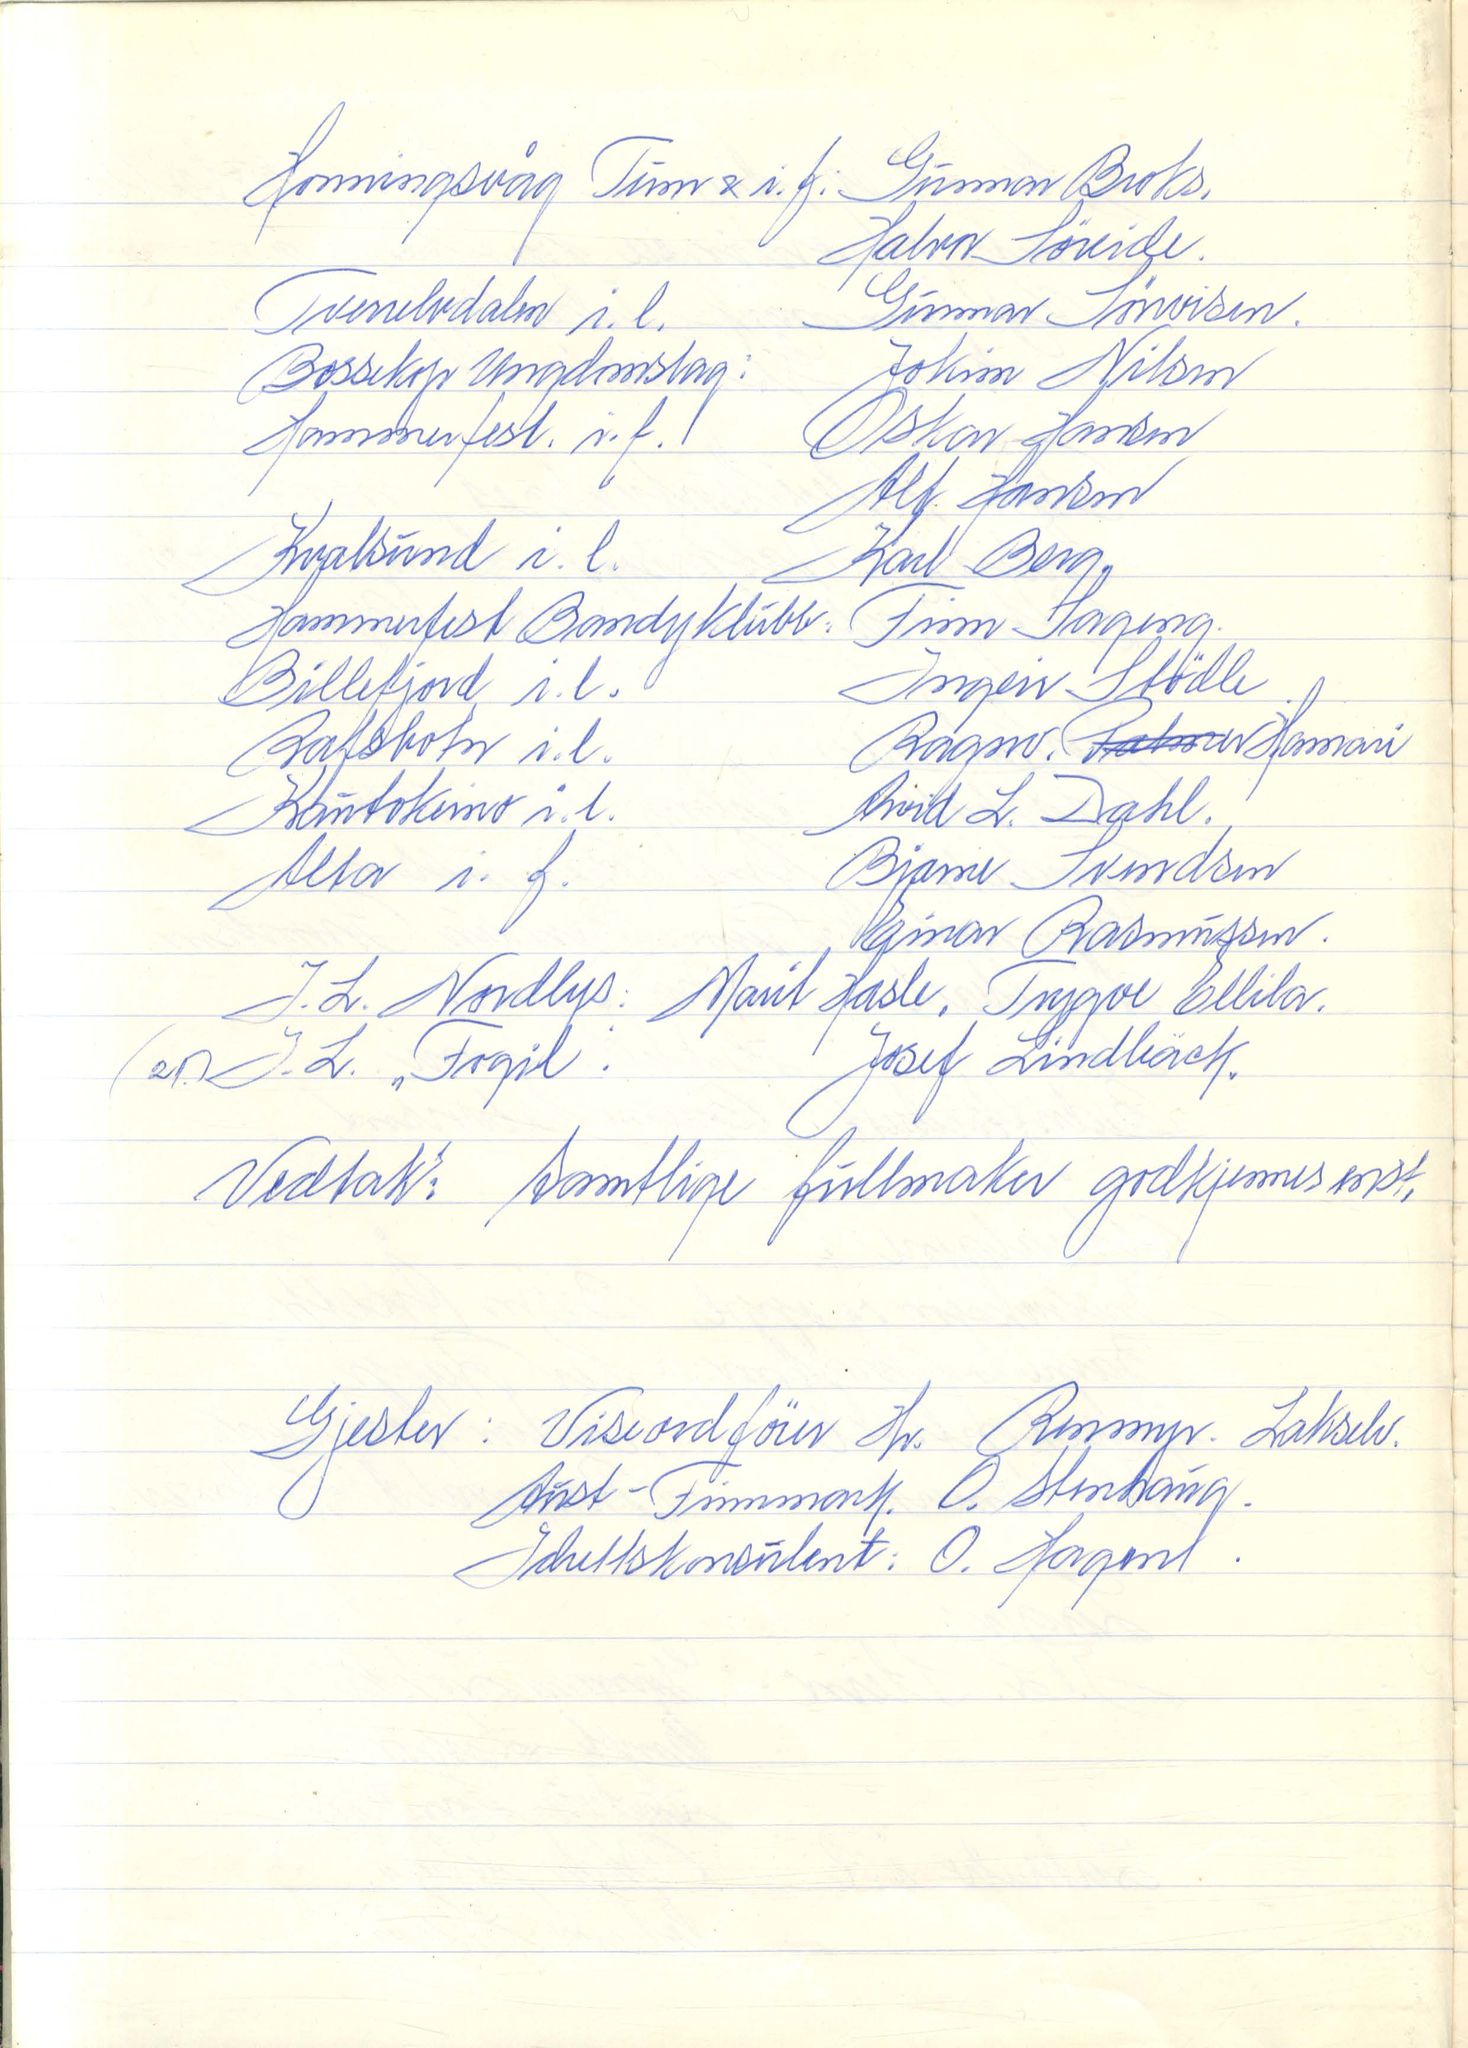 Honningsvåg Turn & i.f: Gunnar Broks.
Halvor Söreide.
Tverrelvdalen i.l. Gunnar Sörvisen.
Bossekop Ungdomslag: Jokim Nilsen
Hammerfest. i.f.! Oskar Hansen
Alf. Hansen
Kvalsund i.l. Karl Berg.
Hammerfest Bandyklubb: Finn Hageng.
Billefjord i.l. Ingeir Stödle.
Rafsbotn i.l. Ragnv. Hamari
Kautokeino i.l. Arvid L. Dahl.
Alta i.f. Bjarne Svendsen
Einar Rasmussen.
I.L. Nordlys: Marit Hasle, Trygve Ellila.
I.L. „Frogil: Josef Lindbäck.
Vedtak: Samtlige fullmaker godkjennes enst.
Gjester: Viseordförer Hr. Renmyr. Lakselv.
Aust-Finnmark. O. Stenhaug.
Idrettskonsulent: O. Hagen.